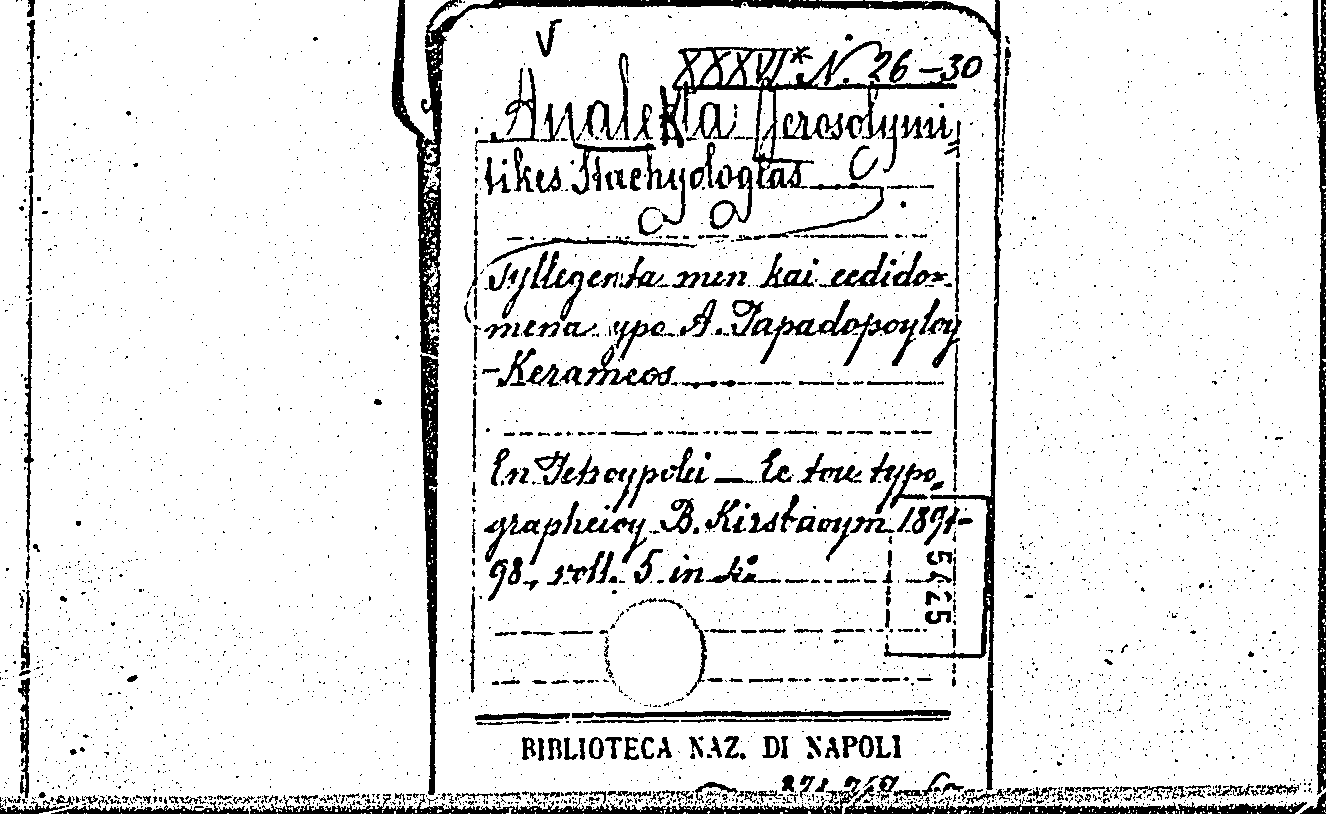 V
XXXVI* N. 26-30
Analekta Jerosolymi,
tikes Stachyologias
Syllegenta men kai ecdido-
mena ypo A. Papadopoyloy
-Kerameos
En Petroypolei — Ec tou typo,
grapheioy B. Kirstaoym 1891-
98, voll. 5 in
5425
BIBLIOTECA NAZ. DI NAPOLI